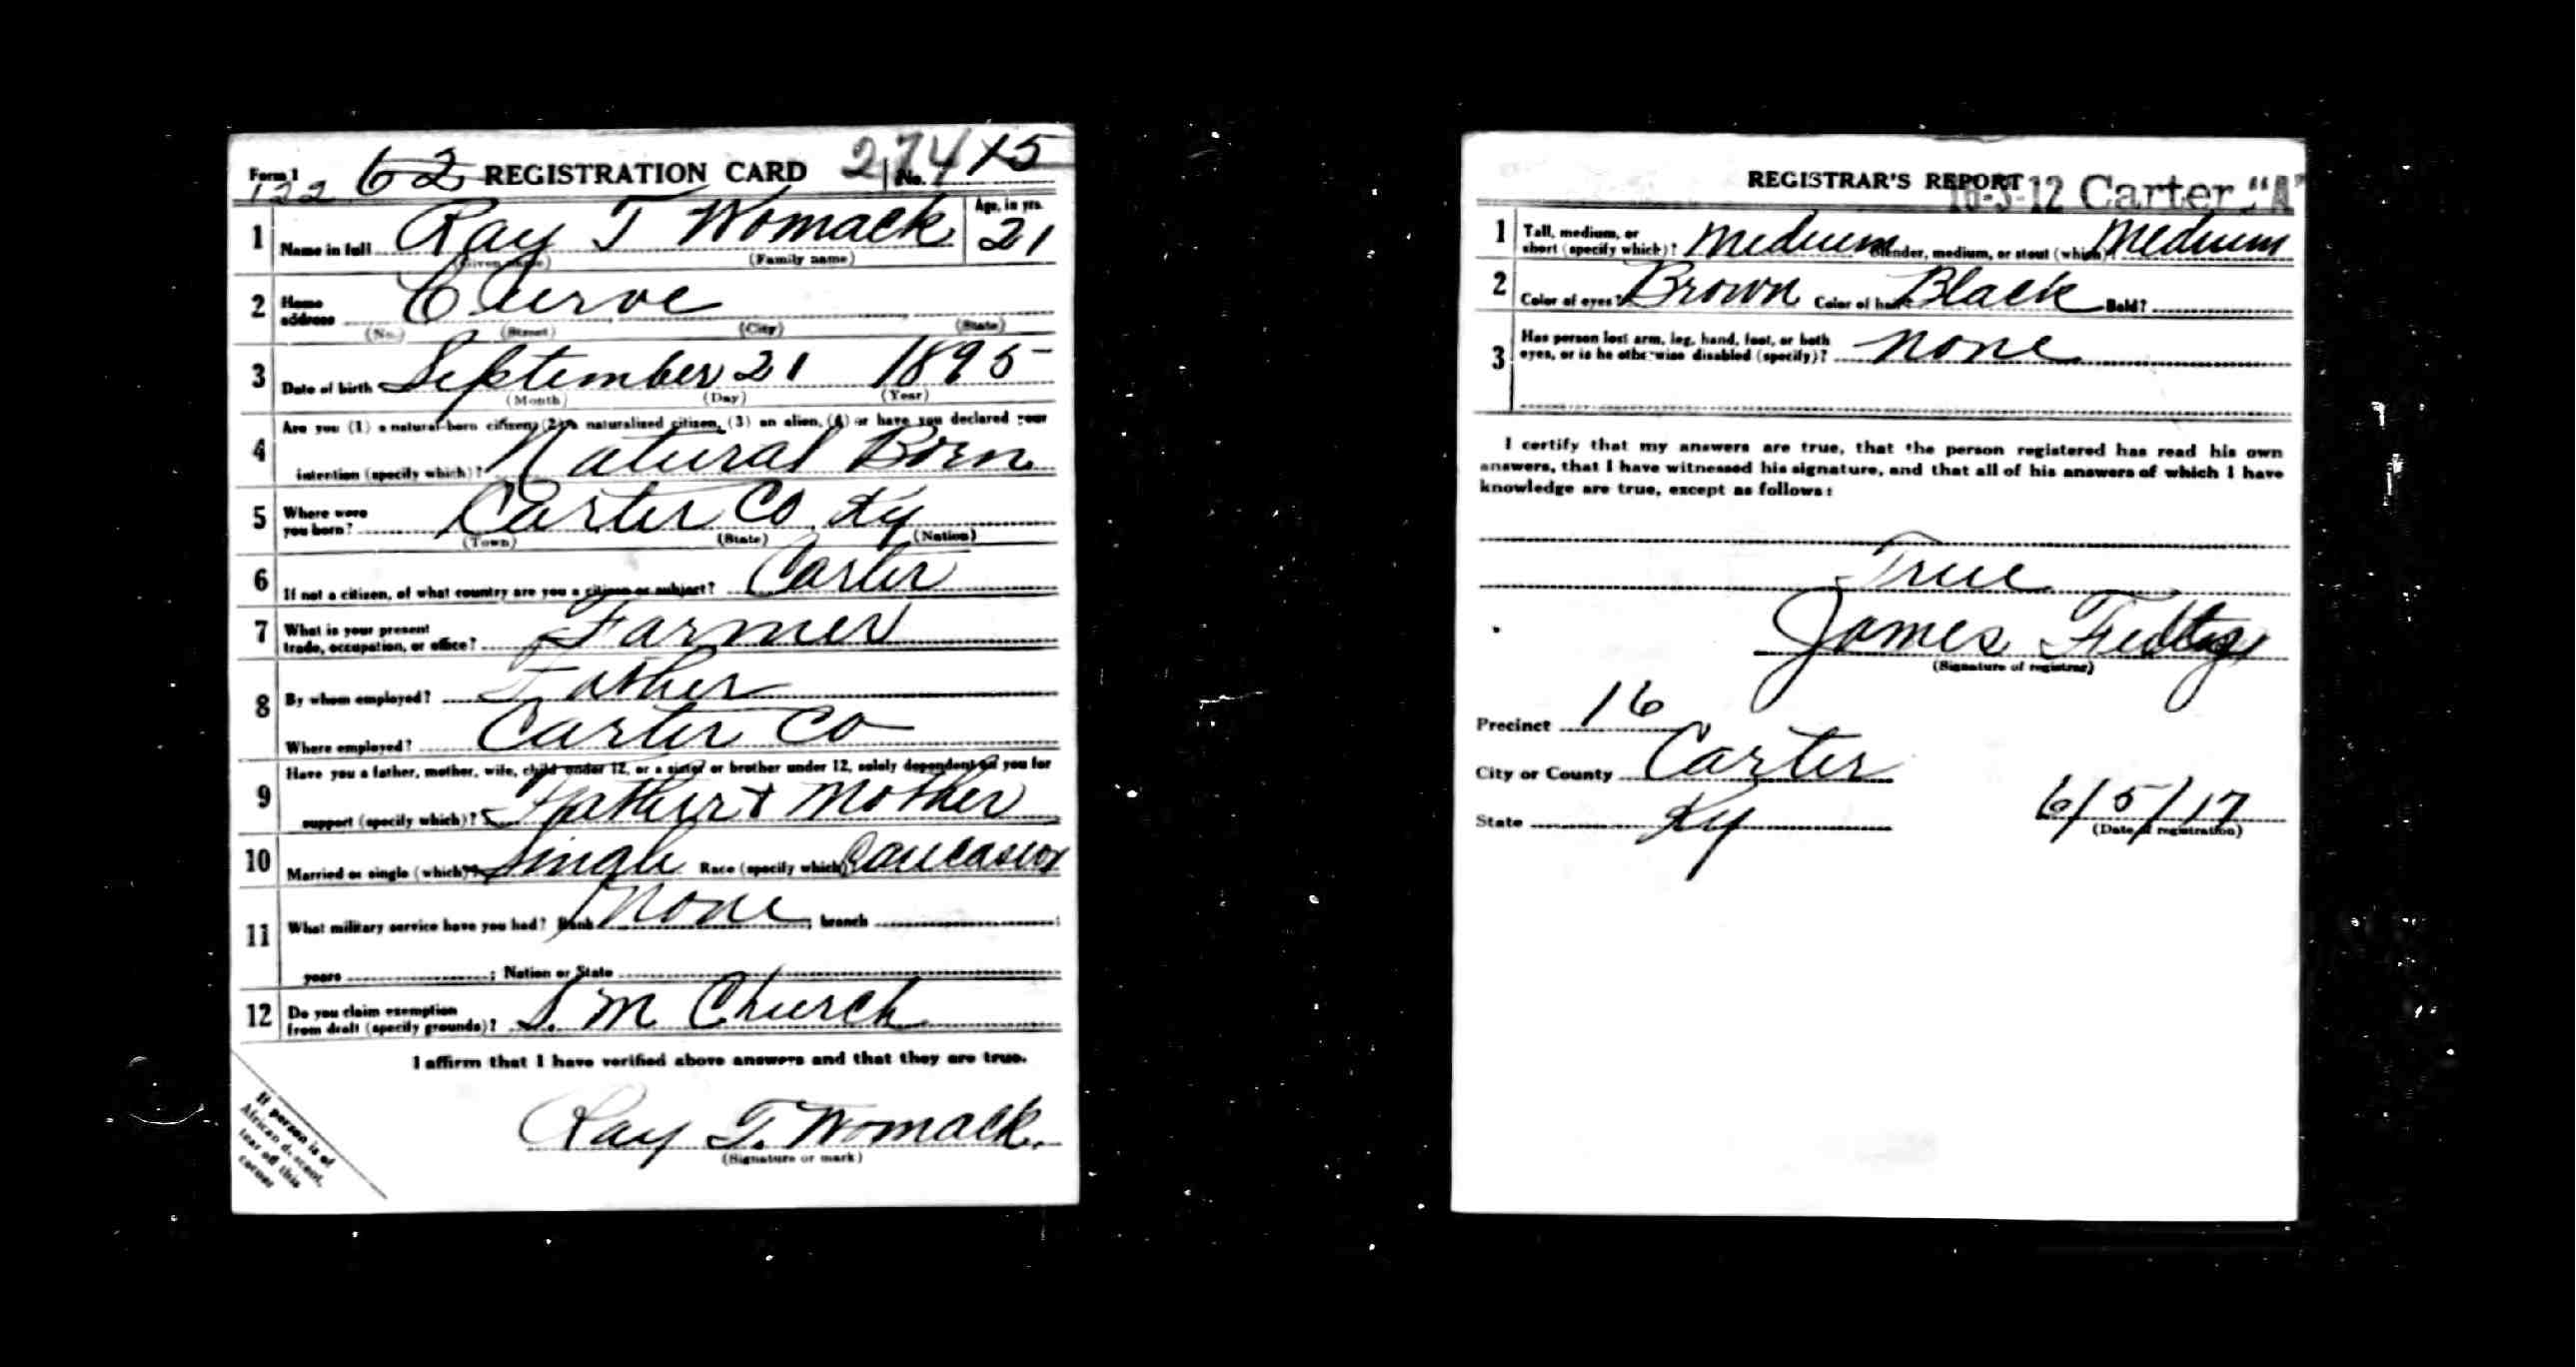 Form 1
122
62 REGISTRATION CARD 274 No. 15
1 Name in full Ray T Womack Age, in yrs. 21
(Given name) (Family name)
2 Home address
(No.) (Street) (City) (State)
3 Date of birth September 21 1895
(Month) (Day) (Year)
Are you (1) a natural-born citizen, (2) a naturalized citizen, (3) an alien, (4) or have you declared your
4 intention (specify which)? Natural Born
5 Where were you born? Carter Co. Ky
(Town) (State) (Nation)
6 If not a citizen, of what country are you a citizen or subject? Carter
7 What is your present trade, occupation, or office? Farmer
8 By whom employed? Father
Where employed? Carter Co
Have you a father, mother, wife, child under 12, or a sister or brother under 12, solely dependent on you for
9 support (specify which)? Father & Mother
10 Married or single (which)? Single Race (specify which)? Caucasion
11 What military service have you had? Rank None; branch ;
years ; Nation or State
12 Do you claim exemption from draft (specify grounds)? S. M Church
I affirm that I have verified above answers and that they are true.
Ray T. Womack.
(Signature or mark)
If person is of
African descent,
tear off this
corner
REGISTRAR'S REPORT 16-3-12 Carter "A"
1 Tall, medium, or short (specify which)? Medium Slender, medium, or stout (which)? Medium
2 Color of eyes? Brown Color of hair? Black Bald?
3 Has person lost arm, leg, hand, foot, or both
eyes, or is he otherwise disabled (specify)? None
I certify that my answers are true, that the person registered has read his own
answers, that I have witnessed his signature, and that all of his answers of which I have
knowledge are true, except as follows:
True
James
(Signature of registrar)
Precinct 16
City or County Carter
State Ky 6/5/17
(Date of registration)